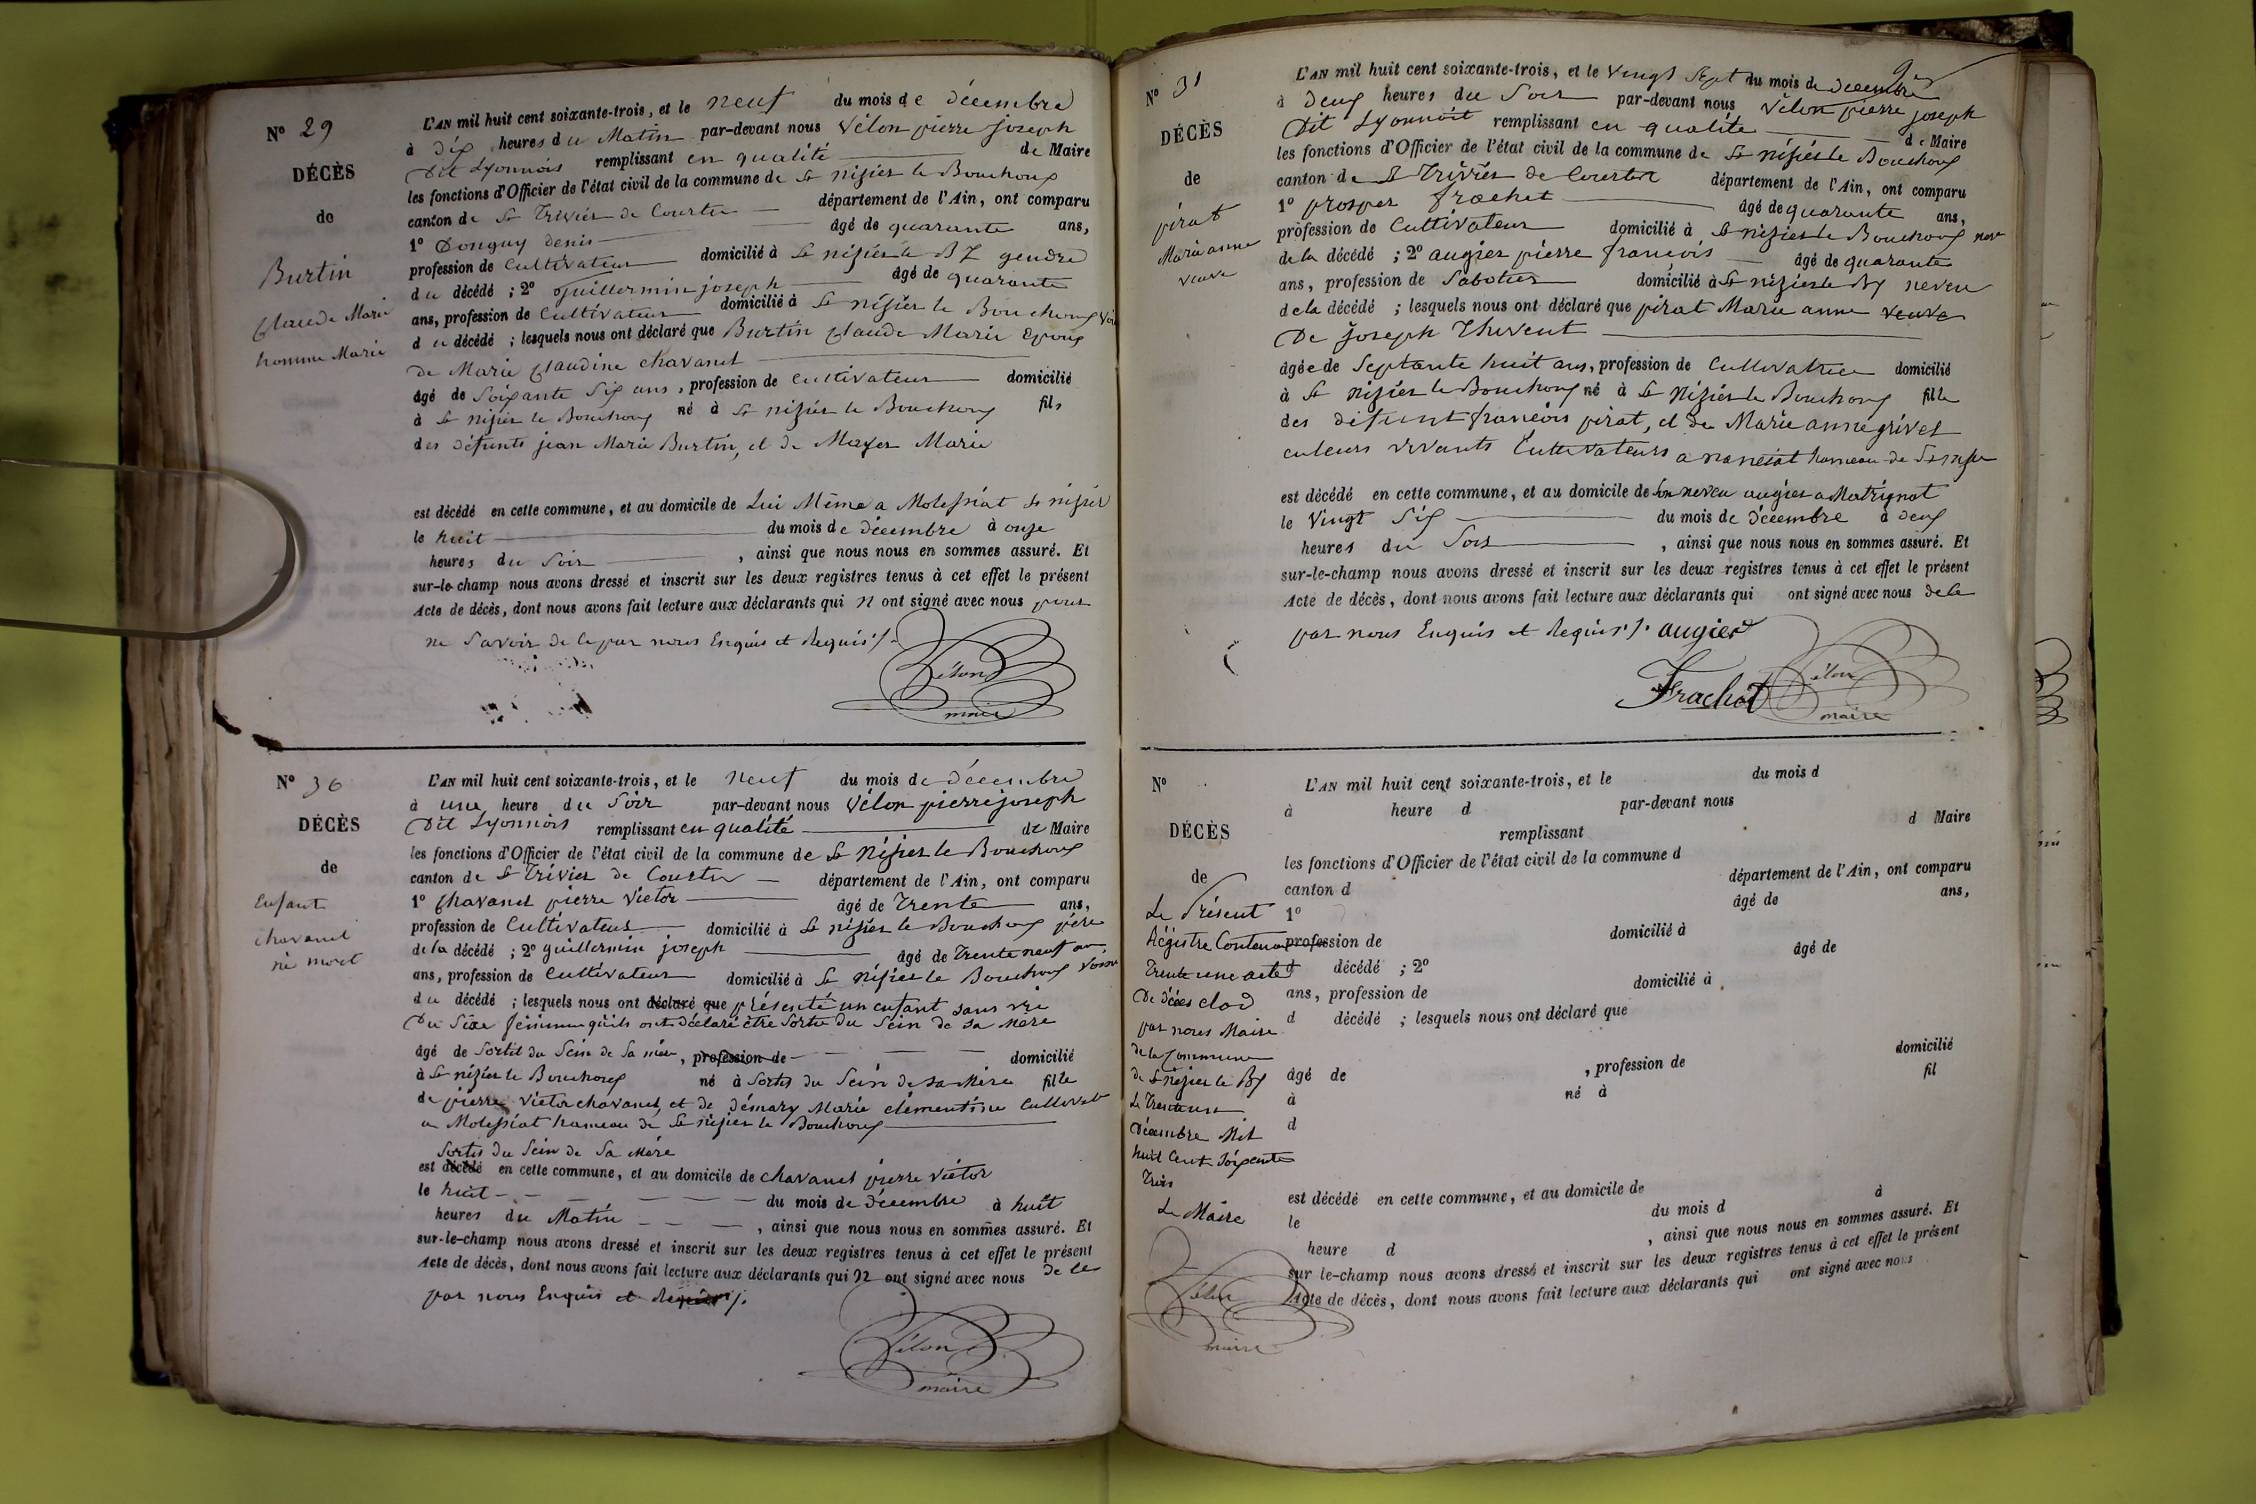 N° 29
DÉCÈS
de
Burtin
Claude Marie
homme Marié
L'AN mil huit cent soixante-trois, et le neuf du mois de décembre
à dix heures du Matin par-devant nous Vélon pierre joseph
Dit Lyonnois remplissant en qualité de Maire
les fonctions d'Officier de l'état civil de la commune de St nizier le Bouchoux
canton de St Trivier de Courtes département de l'Ain, ont comparu
1° Donguy denis âgé de quarante ans,
profession de Cultivateur domicilié à St nizier le BX gendre
du décédé ; 2° Guillermin joseph âgé de quarante
ans, profession de Cultivateur domicilié à St nizier le Bouchoux
du décédé ; lesquels nous ont déclaré que Burtin Claude Marie Epoux
De Marie Claudine chavanel
âgé de Soixante Six ans, profession de Cultivateur domicilié
à St nizier le Bouchoux né à St nizier le Bouchoux fils
des défunts jean Marie Burtin, et de Mayer Marie
est décédé en cette commune, et au domicile de Lui Même a Molessiat St nizier
le huit du mois de décembre à onze
heures du Soir , ainsi que nous nous en sommes assuré. Et
sur-le-champ nous avons dressé et inscrit sur les deux registres tenus à cet effet le présent
Acte de décès, dont nous avons fait lecture aux déclarants qui n ont signé avec nous pour
ne Savoir de le par nous Enquis et Requis /.
Vélon
maire
N° 30
DÉCÈS
de
Enfant
chavanel
né mort
L'AN mil huit cent soixante-trois, et le neuf du mois de décembre
à une heure du Soir par-devant nous Vélon pierre joseph
Dit Lyonnois remplissant en qualité de Maire
les fonctions d'Officier de l'état civil de la commune de St Nizier le Bouchoux
canton de St Trivier de Courtes département de l'Ain, ont comparu
1° Chavanel pierre Victor âgé de Trente ans,
profession de Cultivateur domicilié à St nizier le Bouchoux père
de la décédé ; 2° guillermin joseph âgé de Trente neuf ans
ans, profession de Cultivateur domicilié à St Nizier le Bouchoux Voisin
du décédé ; lesquels nous ont déclaré que présenté un enfant sans vie
Du Sixe féminin qu'ils ont déclaré être Sortie du Sein de sa Mère
âgé de Sortit du Sein de Sa mère, profession de domicilié
à St nizier le Bouchoux né à Sortis du Sein de sa Mère fille
de pierre Victor chavanel, et de démary Marie clémentine Cultivat
a Molessiat hameau de St nizier le Bouchoux
Sortis du Sein de Sa Mère
est décédé en cette commune, et au domicile de chavanel pierre Victor
le huit du mois de décembre à huit
heures du Matin , ainsi que nous nous en sommes assuré. Et
sur-le-champ nous avons dressé et inscrit sur les deux registres tenus à cet effet le présent
Acte de décès, dont nous avons fait lecture aux déclarants qui n ont signé avec nous de le
par nous Enquis et Requis /.
Vélon
maire
N° 31
DÉCÈS
de
pirat
Marie anne
veuve
L'AN mil huit cent soixante-trois, et le Vingt Sept du mois de décembre
à Deux heures du Soir par-devant nous Vélon pierre joseph
Dit Lyonnoit remplissant en qualité de Maire
les fonctions d'Officier de l'état civil de la commune de St nizier le Bouchoux
canton de St Trivier de Courtes département de l'Ain, ont comparu
1° prosper frachet âgé de quarante ans,
profession de Cultivateur domicilié à St nizier le Bouchoux neve
de la décédé ; 2° augier pierre françois âgé de quarante
ans, profession de Sabotier domicilié à St nizier le BX neveu
de la décédé ; lesquels nous ont déclaré que pirat Marie anne veuve
De joseph Thevent
âgée de Septante huit ans, profession de Cultivatrice domicilié
à St nizier le Bouchoux né à St Nizier le Bouchoux fille
des défunt françois pirat, et de Marie anne grivel
en leurs vivants Cultivateurs a hameau de St
est décédé en cette commune, et au domicile de Son neveu augier a Matrignat
le Vingt Six du mois de décembre à deux
heures du Soir , ainsi que nous nous en sommes assuré. Et
sur-le-champ nous avons dressé et inscrit sur les deux registres tenus à cet effet le présent
Acte de décès, dont nous avons fait lecture aux déclarants qui ont signé avec nous de le
par nous Enquis et Requis /. augier
Frachet Vélon
maire
N°
DÉCÈS
de
Le Présent
Régistre Contenant
Trente une acte
De décès clos
par nous Maire
de la Commune
de St nizier le BX
Le Trente un
Décembre Mil
huit Cent Soixante
Trois
Le Maire
Vélon
maire
L'AN mil huit cent soixante-trois, et le du mois d
à heure d par-devant nous
remplissant d Maire
les fonctions d'Officier de l'état civil de la commune d
canton d département de l'Ain, ont comparu
1° âgé de ans,
profession de domicilié à
d décédé ; 2° âgé de
ans, profession de domicilié à
d décédé ; lesquels nous ont déclaré que
âgé de , profession de domicilié
à né à fil
d
est décédé en cette commune, et au domicile de
le du mois d à
heure d , ainsi que nous nous en sommes assuré. Et
sur le-champ nous avons dressé et inscrit sur les deux registres tenus à cet effet le présent
Acte de décès, dont nous avons fait lecture aux déclarants qui ont signé avec nous